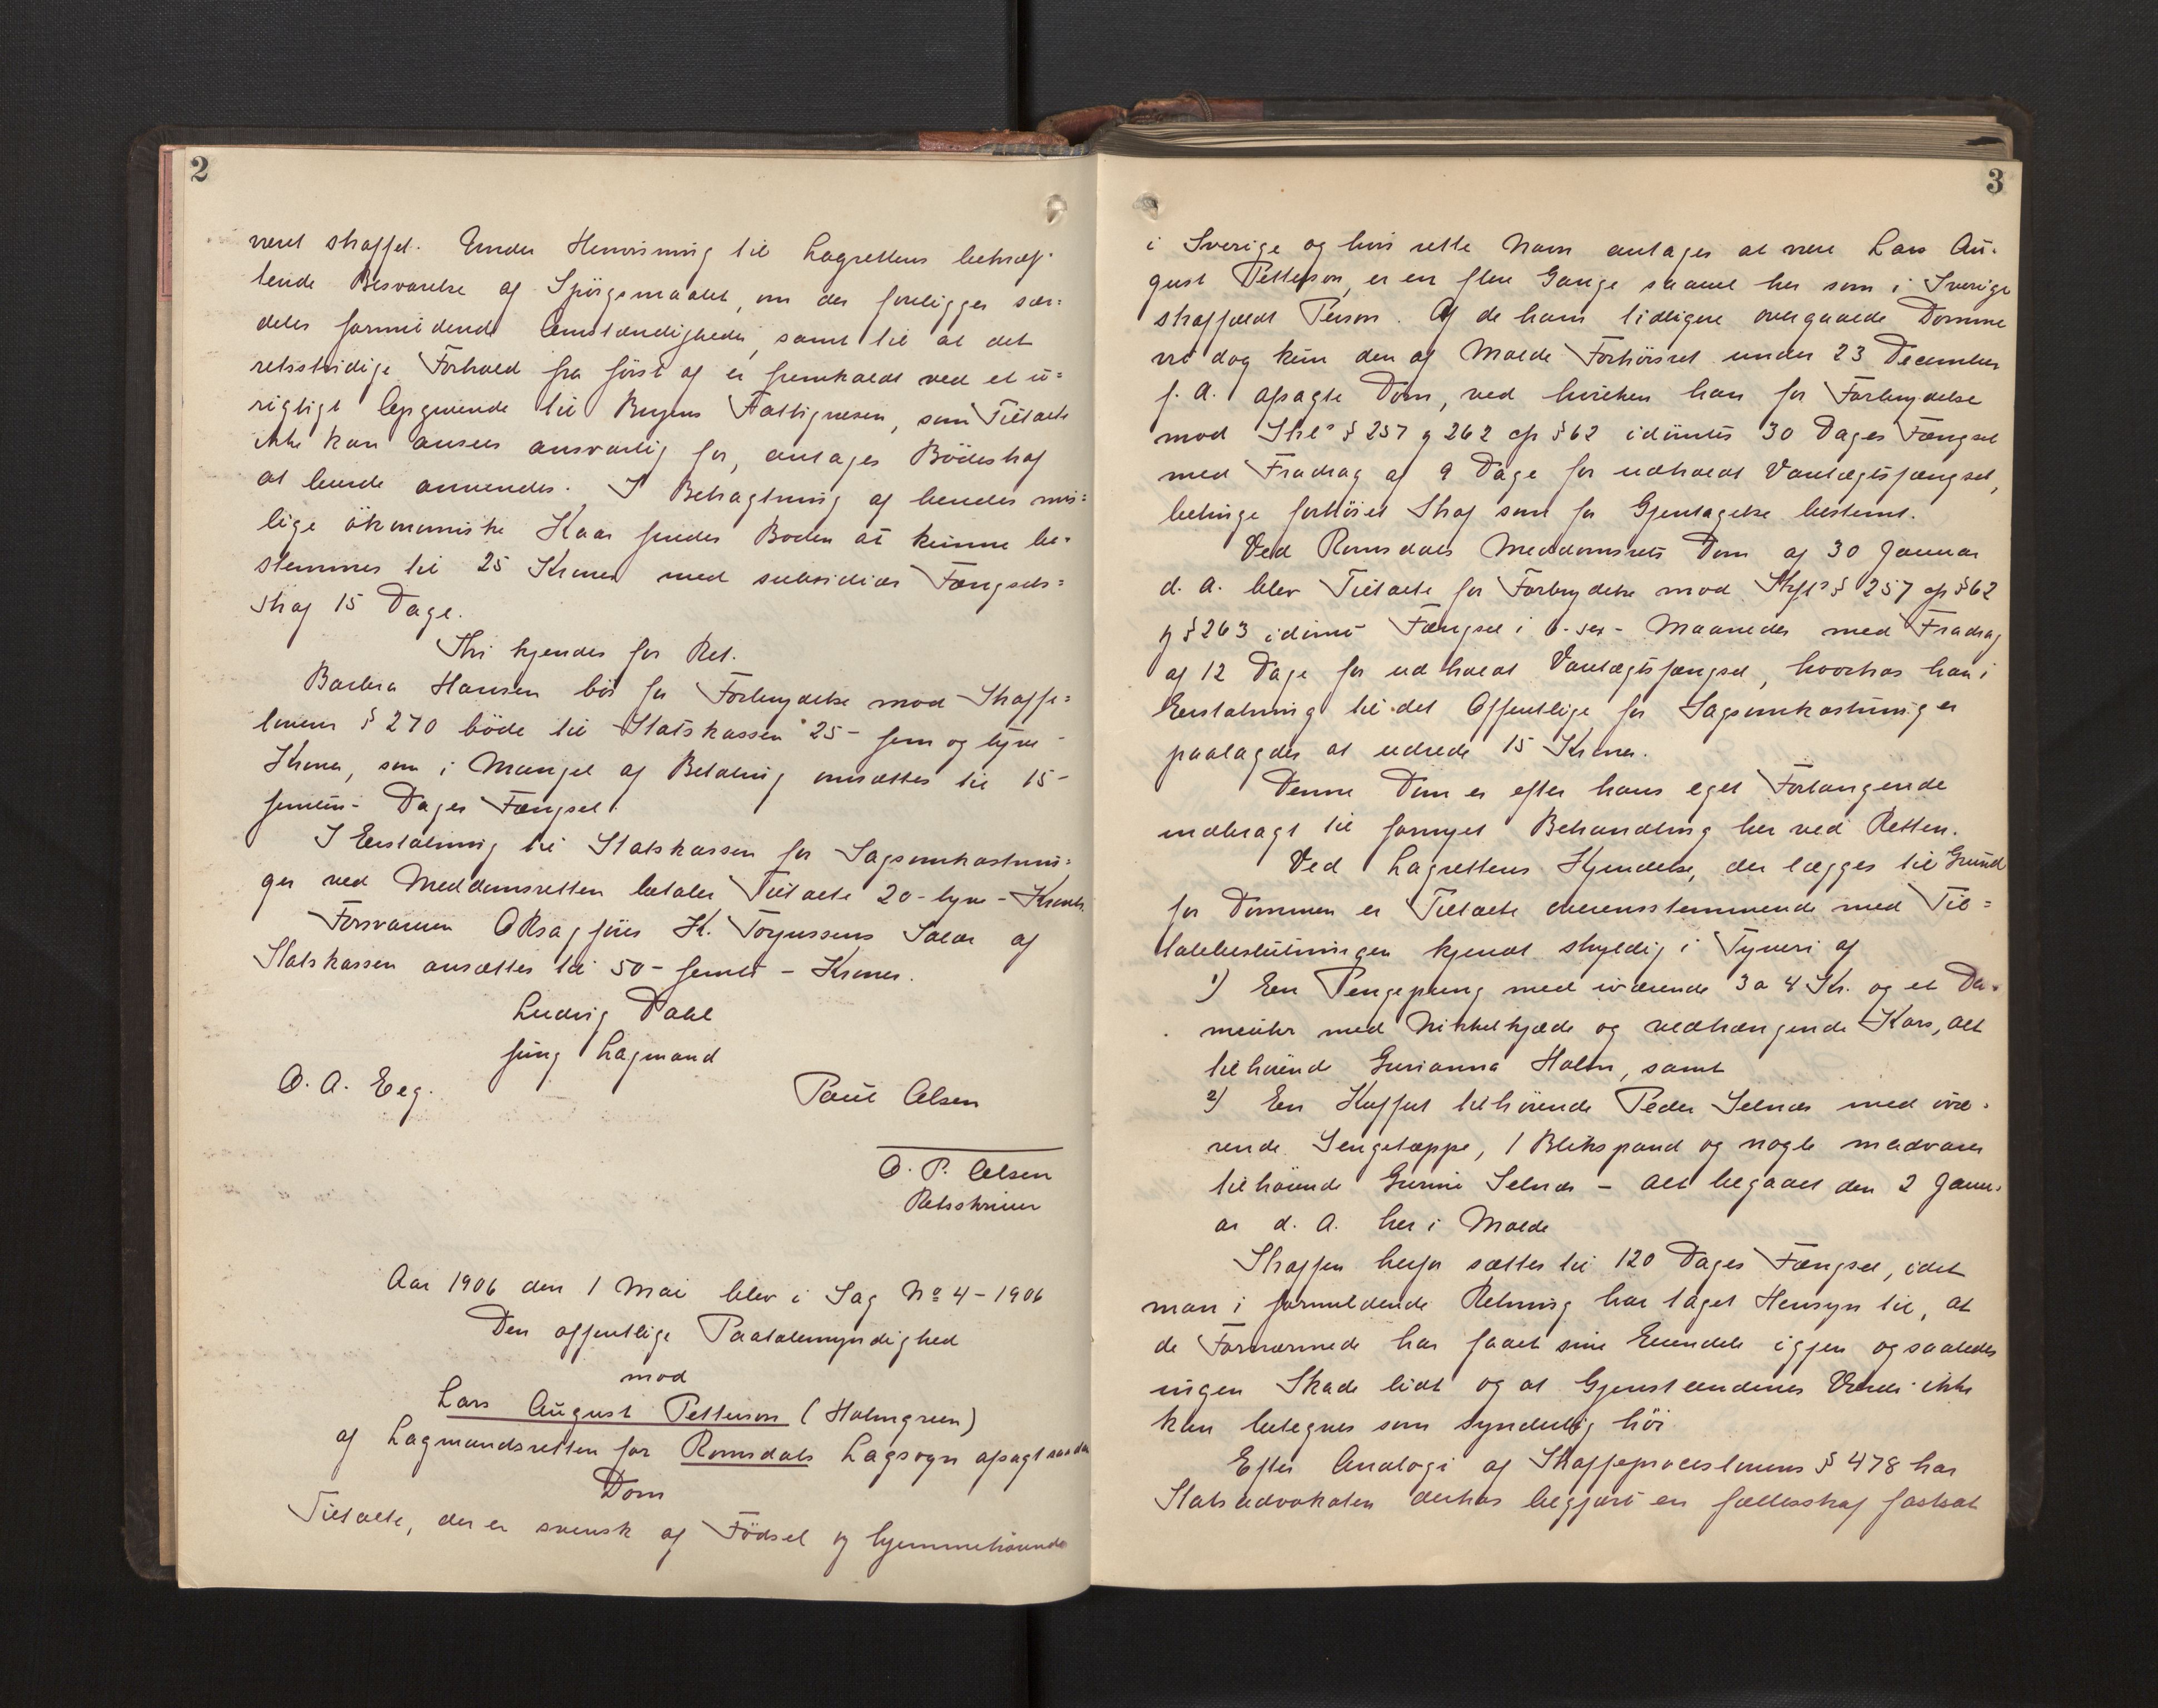 2
været straffet. Under Henvisning til Lagrettens bekræf-
tende Besvarelse af Spörgsmaalet, om der foreligger sær=
deles formildende Omstændigheder, samt til at det
retsstridige Forhold fra först af er fremkaldt ved et u=
rigtigt Opgivende til Byens Fattigvæsen, som Tiltalte
ikke kan ansees ansvarlig for, antages Bödestraf
at burde anvendes. I Betragtning af hendes mis=
lige ökonomiske Kaar findes Boden at kunne be-
stemmes til 25 Kroner med subsidiær Fængsels=
straf 15 Dage.
Thi kjendes for Ret.
Barbra Hansen bör for Forbrydelse mod Straffe=
lovens § 270 böde til Statskassen 25 - fem og tyve -
Kroner, som i Mangel af Betaling omsættes til 15 -
femten - Dages Fængsel.
I Erstatning til Statskassen for Sagsomkostnin=
ger ved Meddomsretten betaler Tiltalte 20 - tyve - Kroner.
Forsvareren ORsagförer K. Torjussens Salær af
Statskassen ansættes til 50 - femti - Kroner.
Ludvig Dahl
fung Lagmand
O. A. Eeg.
Paul Olsen
O. P. Olsen
Retsskriver
Aar 1906 den 1 Mai blev i Sag No 4 - 1906
Den offentlige Paatalemyndighed
mod
Lars August Petterson (Holmgreen)
af Lagmandsretten for Romsdals Lagsogn afsagt saadan
Dom
Tiltalte, der er svensk af Födsel og hjemmehörende
3
i Sverige og hvis rette Navn antages at være Lars Au-
gust Petterson, er en flere Gange saavel her som i Sverige
straffældt Person. Af de ham tidligere overgaaede Domme
vil dog kun den af Molde Forhörsret under 23 December
f. A. afsagte Dom, ved hvilken han for Forbrydelse
mod Strl's § 257 og 262 cfr § 62 idömtes 30 Dages Fængsel
med Fradrag af 9 Dage for udholdt Varetægtsfængsel,
betinge forhöiet Straf som for Gjentagelse bestemt.
Ved Romsdals Meddomsrets Dom af 30 Januar
d. A. blev Tiltalte for Forbrydelse mod Strfl's § 257 cfr § 62
og § 263 idömt Fængsel i 6 - sex - Maaneder med Fradrag
af 12 Dage for udholdt Varetægtsfængsel, hvorhos han i
Erstatning til det Offentlige for Sagsomkostninger
paalagdes at udrede 15 Kroner.
Denne Dom er efter hans eget Forlangende
indbragt til fornyet Behandling her ved Retten.
Ved Lagrettens Kjendelse, der lægges til Grund
for Dommen er Tiltalte overensstemmende med Til=
talebeslutningen kjendt skyldig i Tyveri af
1) Een Pengepung med iværende 3 a 4 Kr. og et Da-
meuhr med Nikkelkjæde og vedhængende Kors, alt
tilhörende Gurianna Holm, samt
2) Een Kuffert tilhörende Peder Selnæs med ivæ-
rende Sengetæppe, 1 Blikspand og nogle madvarer
tilhörende Gurine Selnæs - alt begaaet den 2 Janu-
ar d. A. her i Molde
Straffen herfor sættes til 120 Dages Fængsel, idet
man i formildende Retning har taget Hensyn til, at
de Fornærmede har faaet sine Eiendele igjen og saaledes
ingen Skade lidt og at Gjenstandenes Værdi ikke
kan betegnes som synderlig höi.
Efter Analogi af Straffeproceslovens § 478 har
Statsadvokaten derhos begjært en fællesstraf fastsat